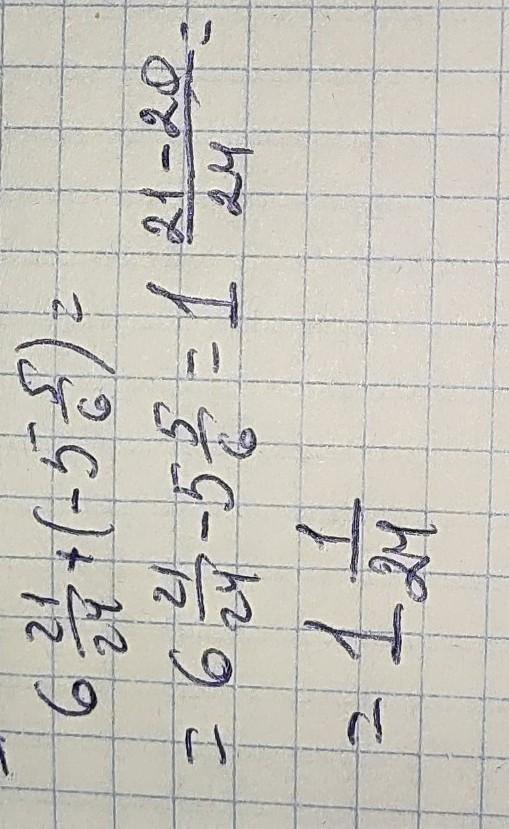 6 21/24 + (-5 5/6) =
= 6 21/24 - 5 5/6 = 1 (21-20)/24 =
= 1 1/24